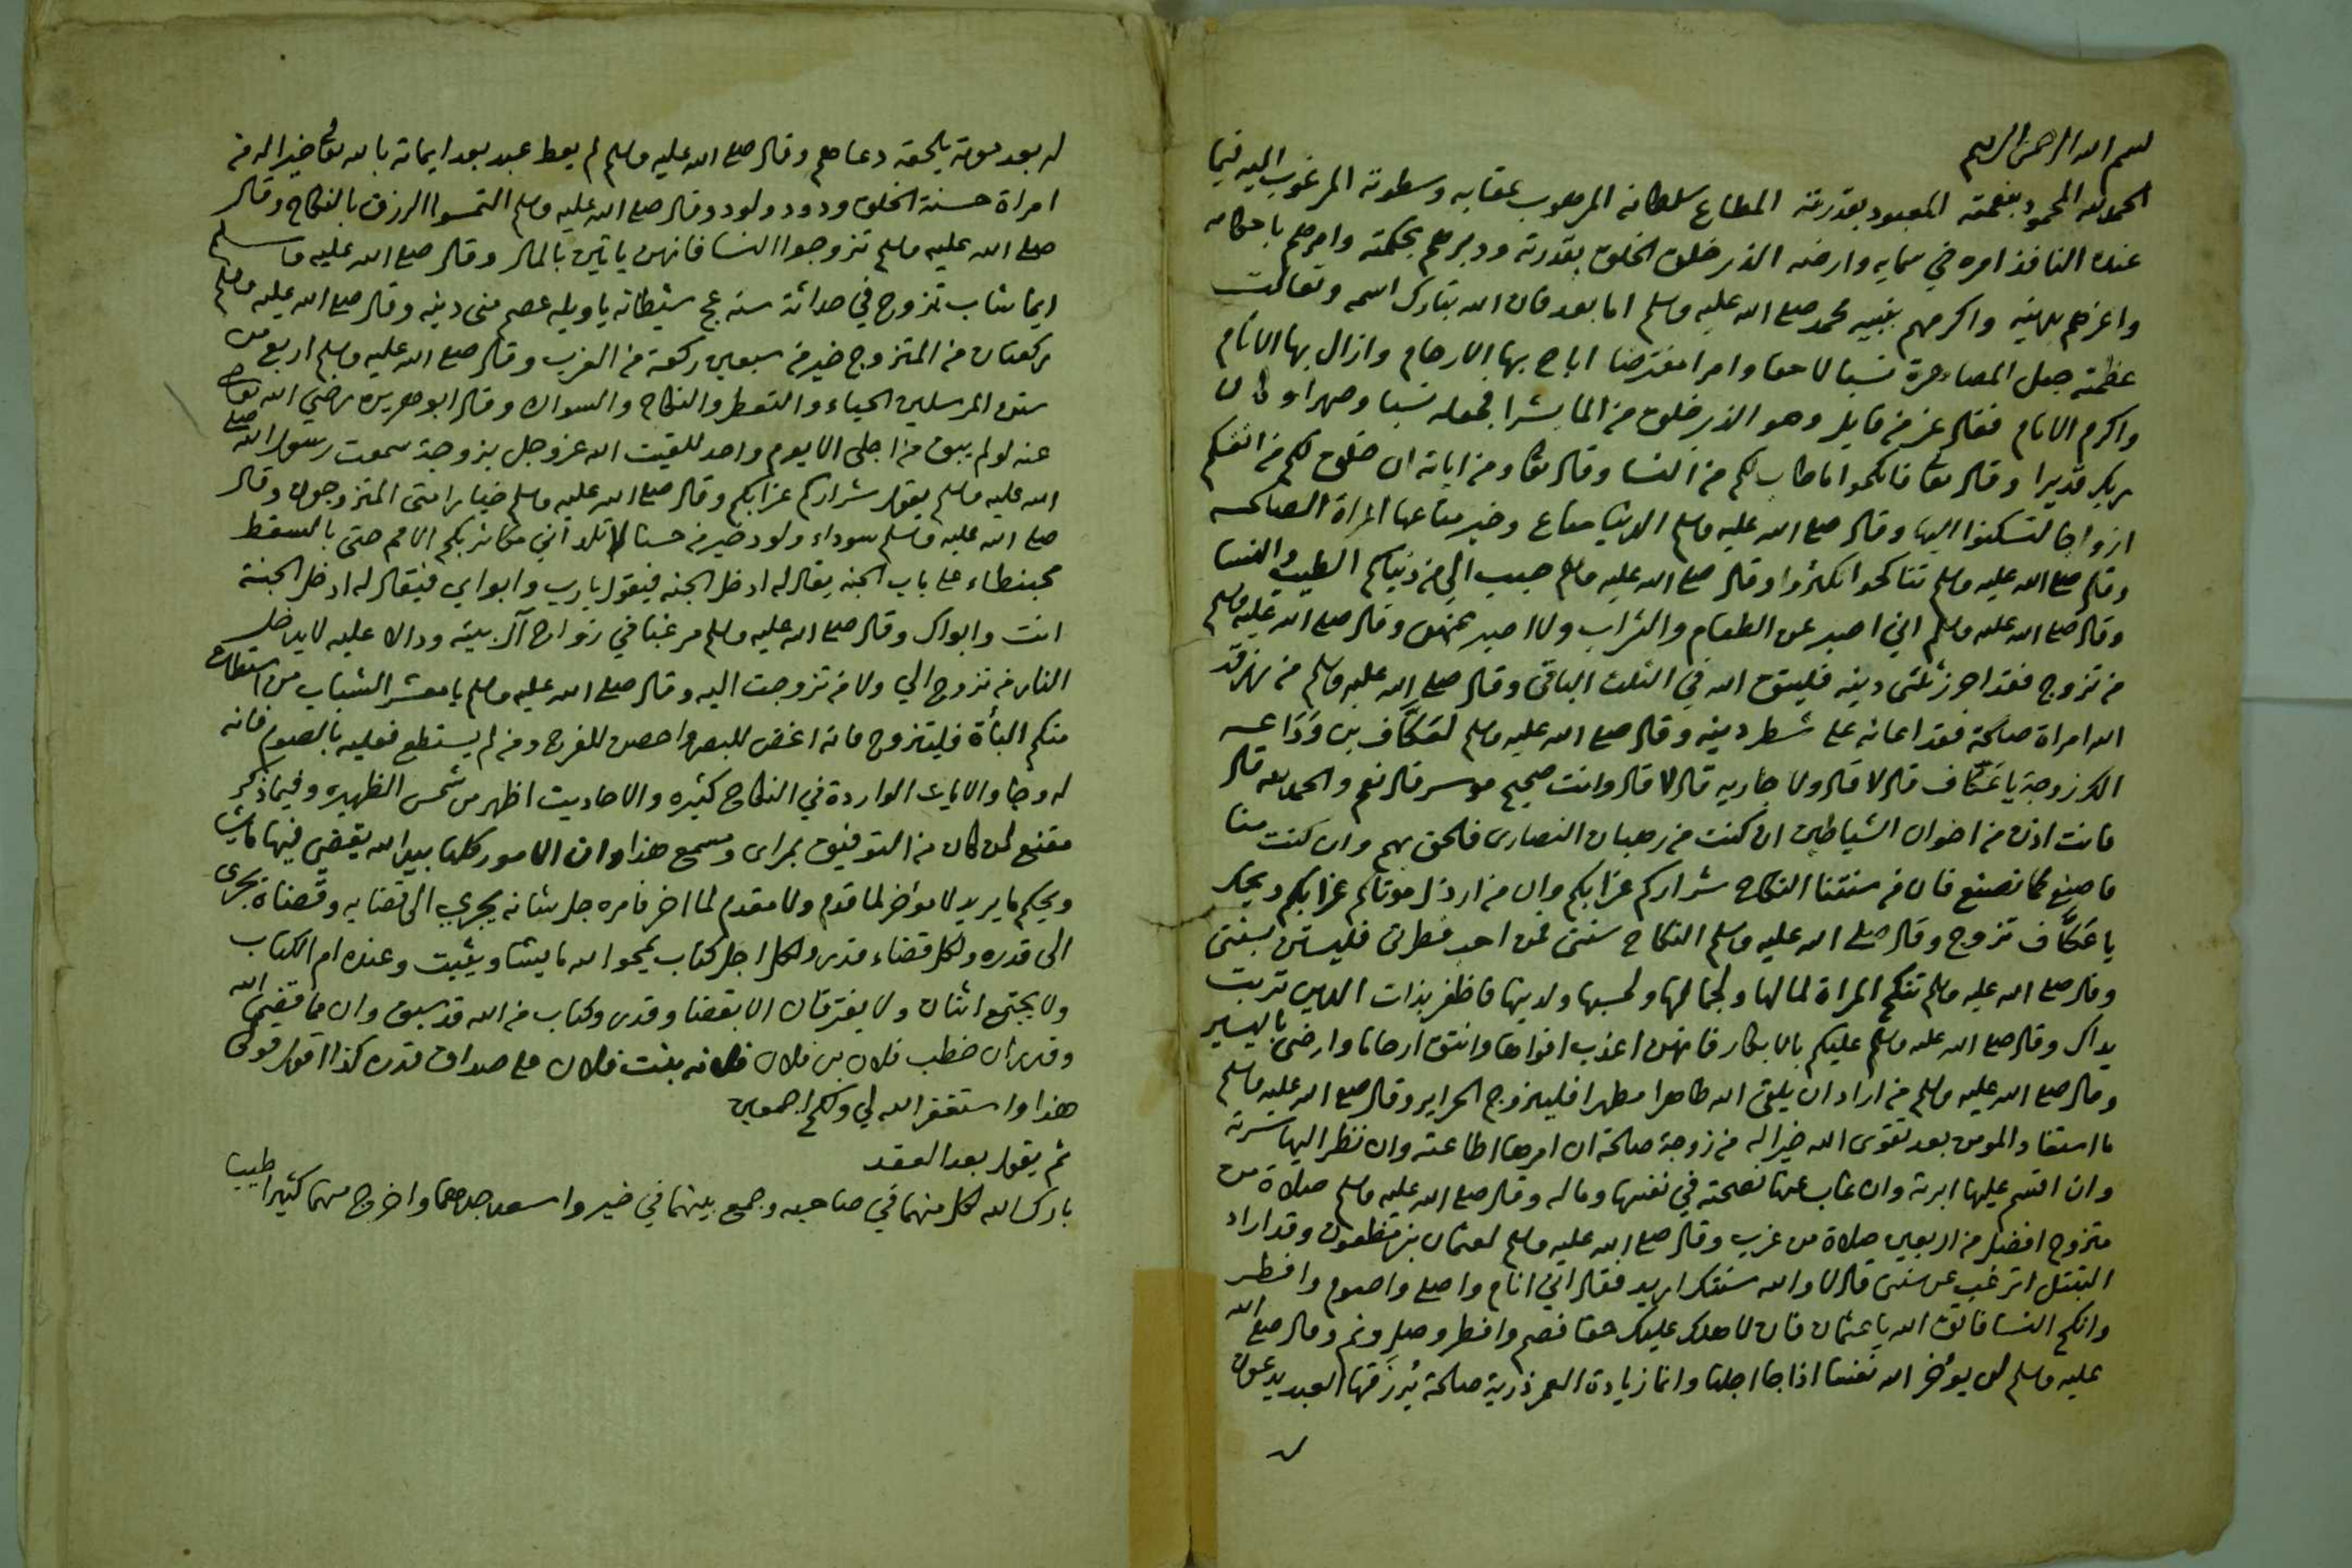 بسم الله الرحمن الرحيم
الحمد لله المحمود بنعمته المعبود بقدرته المطاع بسلطانه المرهوب عقابه وسطوته المرغوب اليه فيما
عنده النافذ امره في سمايه وارضه الذي خلق الخلق بقدرته ودبرهم بحكمته وامرهم باحكامه
واعزهم بدينه واكرمهم بنبيه محمد صلى الله عليه وسلم اما بعد فان الله تبارك اسمه وتعالت
عظمته جعل المصاهرة نسبا لاحقا وامرا مفترضا اباح بها الارحام وازال بها الاثام
واكرم الانام فقال عز من قايل وهو الذي خلق من الما بشرا فجعله نسبا وصهرا وكان
ربك قديرا وقال تعا فانكحوا ما طاب لكم من النسا وقال تعا ومن اياته ان خلق لكم من انفسكم
ازواجا لتسكنوا اليها وقال صلى الله عليه وسلم الدنيا متاع وخير متاعها المراة الصالحه
وقال صلى الله عليه وسلم تناكحوا تكثروا وقال صلى الله عليه وسلم حبب الي من دنياكم الطيب والنسا
وقال صلى الله عليه وسلم اني اصبر عن الطعام والشراب ولا اصبر عنهن وقال صلى الله عليه وسلم
من تزوج فقد احرز ثلثي دينه فليتق الله في الثلث الباقي وقال صلى الله عليه وسلم من رزقه
الله امراة صالحة فقد اعانه على شطر دينه وقال صلى الله عليه وسلم لعَكَّاف بن وَدَاعه
الك زوجة يا عَكَّاف قال لا قال ولا جاريه قال لا قال وانت صحيح موسر قال نعم والحمد لله قال
فانت اذن من اخوان الشياطين ان كنت من رهبان النصارى فالحق بهم وان كنت منا
فاصنع كما نصنع فان من سنتنا النكاح شراركم عزابكم وان من ارذل موتاكم عزابكم ويحك
يا عَكَّاف تزوج وقال صلى الله عليه وسلم النكاح سنتي فمن احب فطرتي فليستن بسنتي
وقال صلى الله عليه وسلم تنكح المراة لمالها ولجمالها ولحسبها ولدينها فاظفر بذات الدين تربت
يداك وقال صلى الله عليه وسلم عليكم بالابكار فانهن اعذب افواها وانتق ارحاما وارضى باليسير
وقال صلى الله عليه وسلم من اراد ان يلقى الله طاهرا مطهرا فليتزوج الحراير وقال صلى الله عليه وسلم
ما استفاد المومن بعد تقوى الله خيرا له من زوجة صالحة ان امرها اطاعته وان نظر اليها سرته
وان اقسم عليها ابرته وان غاب عنها نصحته في نفسها وماله وقال صلى الله عليه وسلم صلاة من
متزوج افضل من اربعين صلاة من عزب وقال صلى الله عليه وسلم لعثمان بن مظعون وقد اراد
التبتل اترغب عن سنتي قال لا والله سنتك اريد فقال اني انام واصلي واصوم وافطر
وانكح النسا فاتق الله يا عثمان فان لاهلك عليك حقا فصم وافطر وصل ونم وقال صلى الله
عليه وسلم لن يوخر الله نفسا اذا جا اجلها وانما زيادة العمر ذرية صالحة يُرزَقها العبد يدعون
له بعد موته يلحقه دعاهم وقال صلى الله عليه وسلم لم يعط عبد بعد ايمانه بالله تعالى خيرا له من
امراة حسنة الخلق ودود ولود وقال صلى الله عليه وسلم التمسوا الرزق بالنكاح وقال
صلى الله عليه وسلم تزوجوا النسا فانهن ياتين بالمال وقال صلى الله عليه وسلم
ايما شاب تزوج في حداثة سنه عج شيطانه يا ويله عصم مني دينه وقال صلى الله عليه وسلم
ركعتان من المتزوج خير من سبعين ركعة من العزب وقال صلى الله عليه وسلم اربع من
سنن المرسلين الحياء والتعطر والنكاح والسواك وقال ابو هريره رضي الله تعالى
عنه لو لم يبق من اجلي الا يوم واحد للقيت الله عز وجل بزوجة سمعت رسول الله صلى
الله عليه وسلم يقول شراركم عزابكم وقال صلى الله عليه وسلم خيار امتي المتزوجون وقال
صلى الله عليه وسلم سوداء ولود خير من حسنا لا تلد اني مكاثر بكم الامم حتى بالسقط
محبنطاء على باب الجنه يقال له ادخل الجنه فيقول يا رب وابواي فيقال له ادخل الجنة
انت وابواك وقال صلى الله عليه وسلم مرغبا في زواج آل بيته ودالا عليه لا يدخل
النار من تزوج الي ولا من تزوجت اليه وقال صلى الله عليه وسلم يا معشر الشباب من استطاع
منكم البأة فليتزوج فانه اغض للبصر واحصن للفرج ومن لم يستطع فعليه بالصوم فانه
له وجا والايات الواردة في النكاح كثيره والاحاديث اظهر من شمس الظهيره وفيما ذكر
مقنع لمن كان من التوفيق بمراى ومسمع هذا وان الامور كلها بيد الله يقضي فيها ما يشا
ويحكم ما يريد لا موخر لما قدم ولا مقدم لما اخر فامره جل شانه يجري الى قضايه وقضاه يجرى
الى قدره ولكل قضاء قدر ولكل اجل كتاب يمحو الله ما يشا ويثبت وعنده ام الكتاب
ولا يجتمع اثنان ولا يفترقان الا بقضا وقدر وكتاب من الله قد سبق وان مما قضى الله
وقدر ان خطب فلان بن فلان فلانه بنت فلان على صداق قدره كذا اقول قولي
هذا واستغفر الله لي ولكم اجمعين
ثم يقول بعد العقد
بارك الله لكل منهما في صاحبه وجمع بينهما في خير واسعد جدهما واخرج منهما كثيرا طيبا